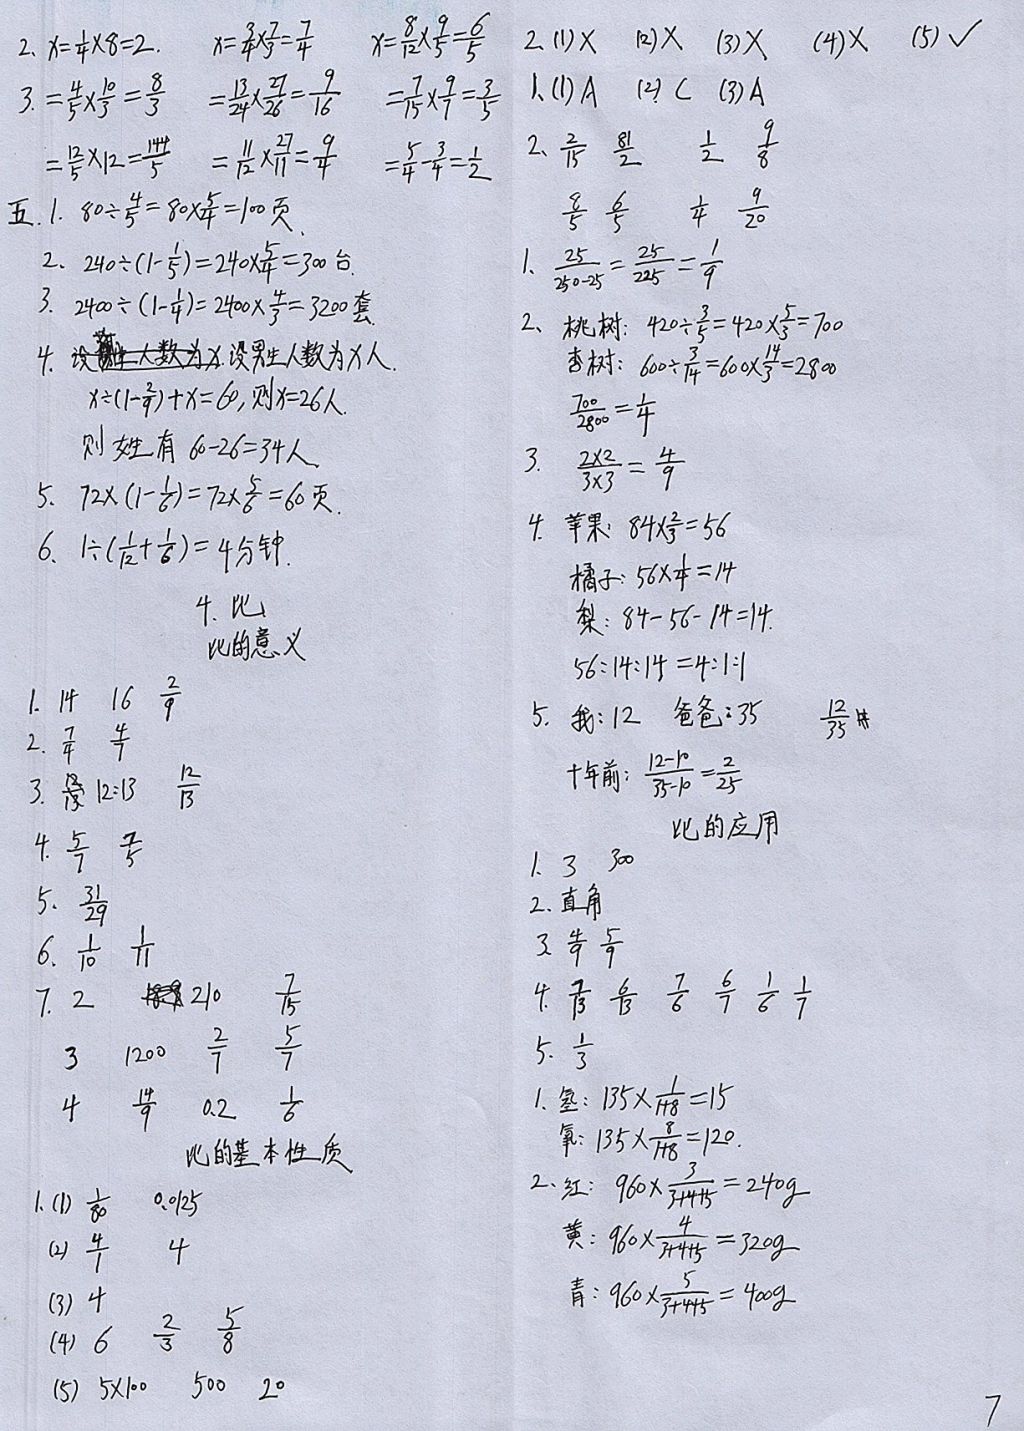 2. x=1/4×8=2. x=3/4×7/3=7/4 x=8/12×9/5=6/5
3. =4/5×10/3=8/3 =13/24×27/26=9/16 =7/15×9/7=3/5
=12/5×12=144/5 =11/12×27/11=9/4 =5/4-3/4=1/2
五. 1. 80÷4/5=80×5/4=100页.
2. 240÷(1-1/5)=240×5/4=300台.
3. 2400÷(1-1/4)=2400×4/3=3200套.
4. 设男生人数为x人.
x÷(1-2/9)+x=60,则x=26人.
则女生有 60-26=34人.
5. 72×(1-1/6)=72×5/6=60页.
6. 1÷(1/12+1/6)=4分钟.
4. 比
比的意义
1. 14 16 2/9
2. 7/4 4/7
3. 12:13 12/13
4. 5/7 7/5
5. 31/29
6. 1/10 1/11
7. 2 210 7/15
3 1200 2/7 5/7
4 14/9 0.2 1/6
比的基本性质
1. (1) 1/80 0.0125
(2) 4/1 4
(3) 4
(4) 6 2/3 5/8
(5) 5×100 500 20
2. (1)× (2)× (3)× (4)× (5)✓
1. (1)A (2)C (3)A
2. 2/15 81/2 1/2 9/8
8/5 6/5 1/4 9/20
1. 25/250-25=25/225=1/9
2. 桃树: 420÷3/5=420×5/3=700
杏树: 600÷3/14=600×14/3=2800
700/2800=1/4
3. 2×2/3×3=4/9
4. 苹果: 84×2/3=56
橘子: 56×1/4=14
梨: 84-56-14=14.
56:14:14=4:1:1
5. 我:12 爸爸:35 12/35
十年前: 12-10/35-10=2/25
比的应用
1. 3 300
2. 直角
3. 4/9 5/9
4. 7/13 6/13 7/6 6/7 1/6 1/7
5. 1/3
1. 氢: 135×1/1+8=15
氧: 135×8/1+8=120.
2. 红: 960×3/3+4+5=240g
黄: 960×4/3+4+5=320g
青: 960×5/3+4+5=400g
7